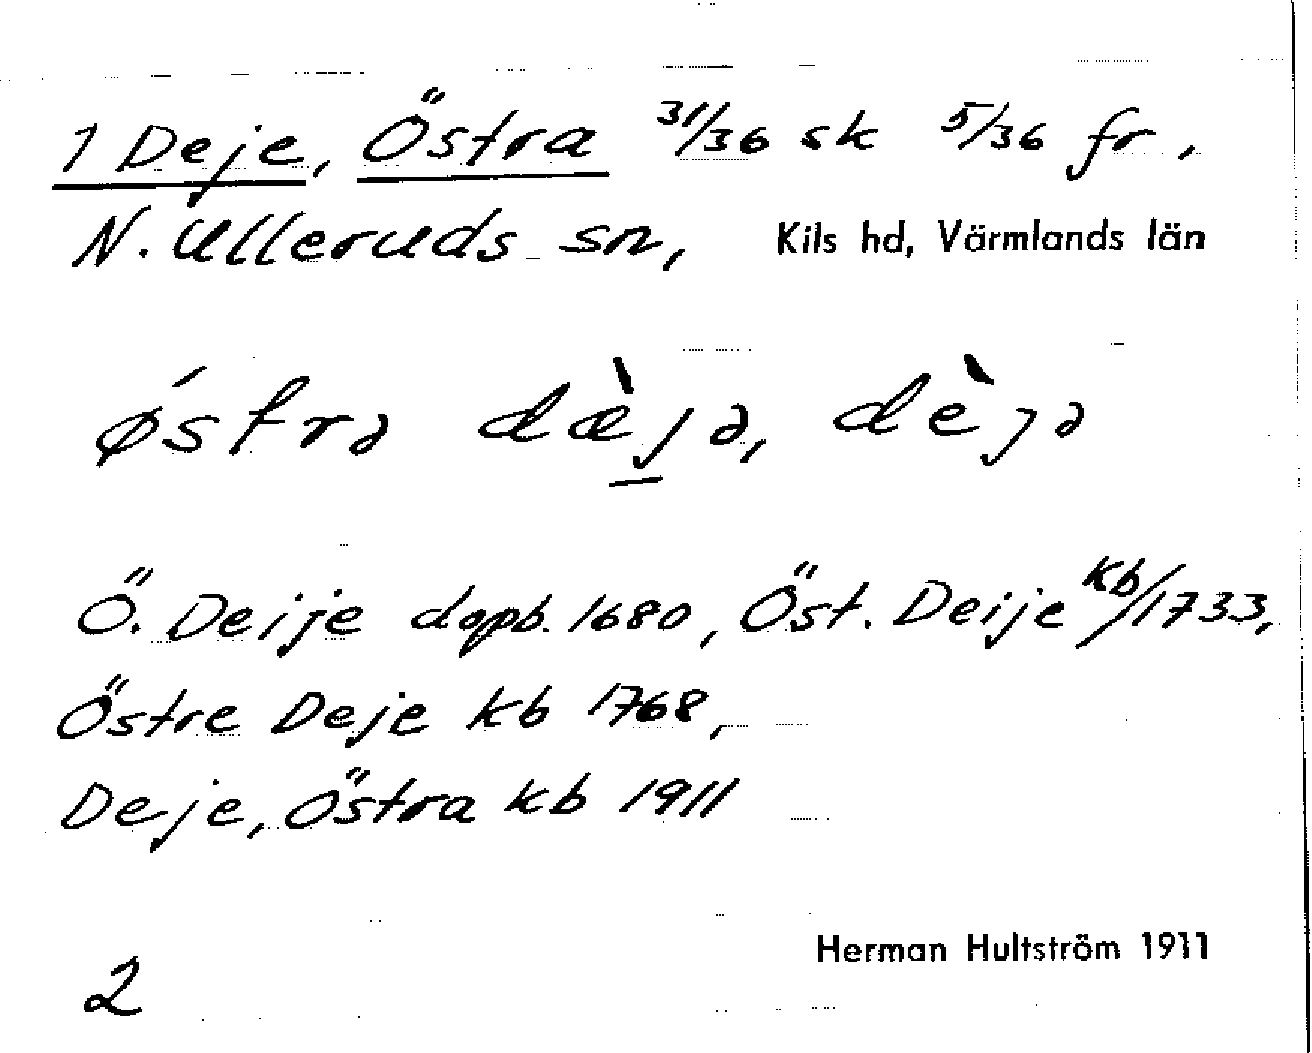 1 Deje, Östra 31/36 sk 5/36 fr,
N. Ulleruds sn, Kils hd, Värmlands län
ǿstrə dæ̀jə, dèjə
Ö. Deije dopb. 1680, Öst. Deije kb/1733,
Östre Deje kb 1768,
Deje, Östra kb 1911
Herman Hultström 1911
2